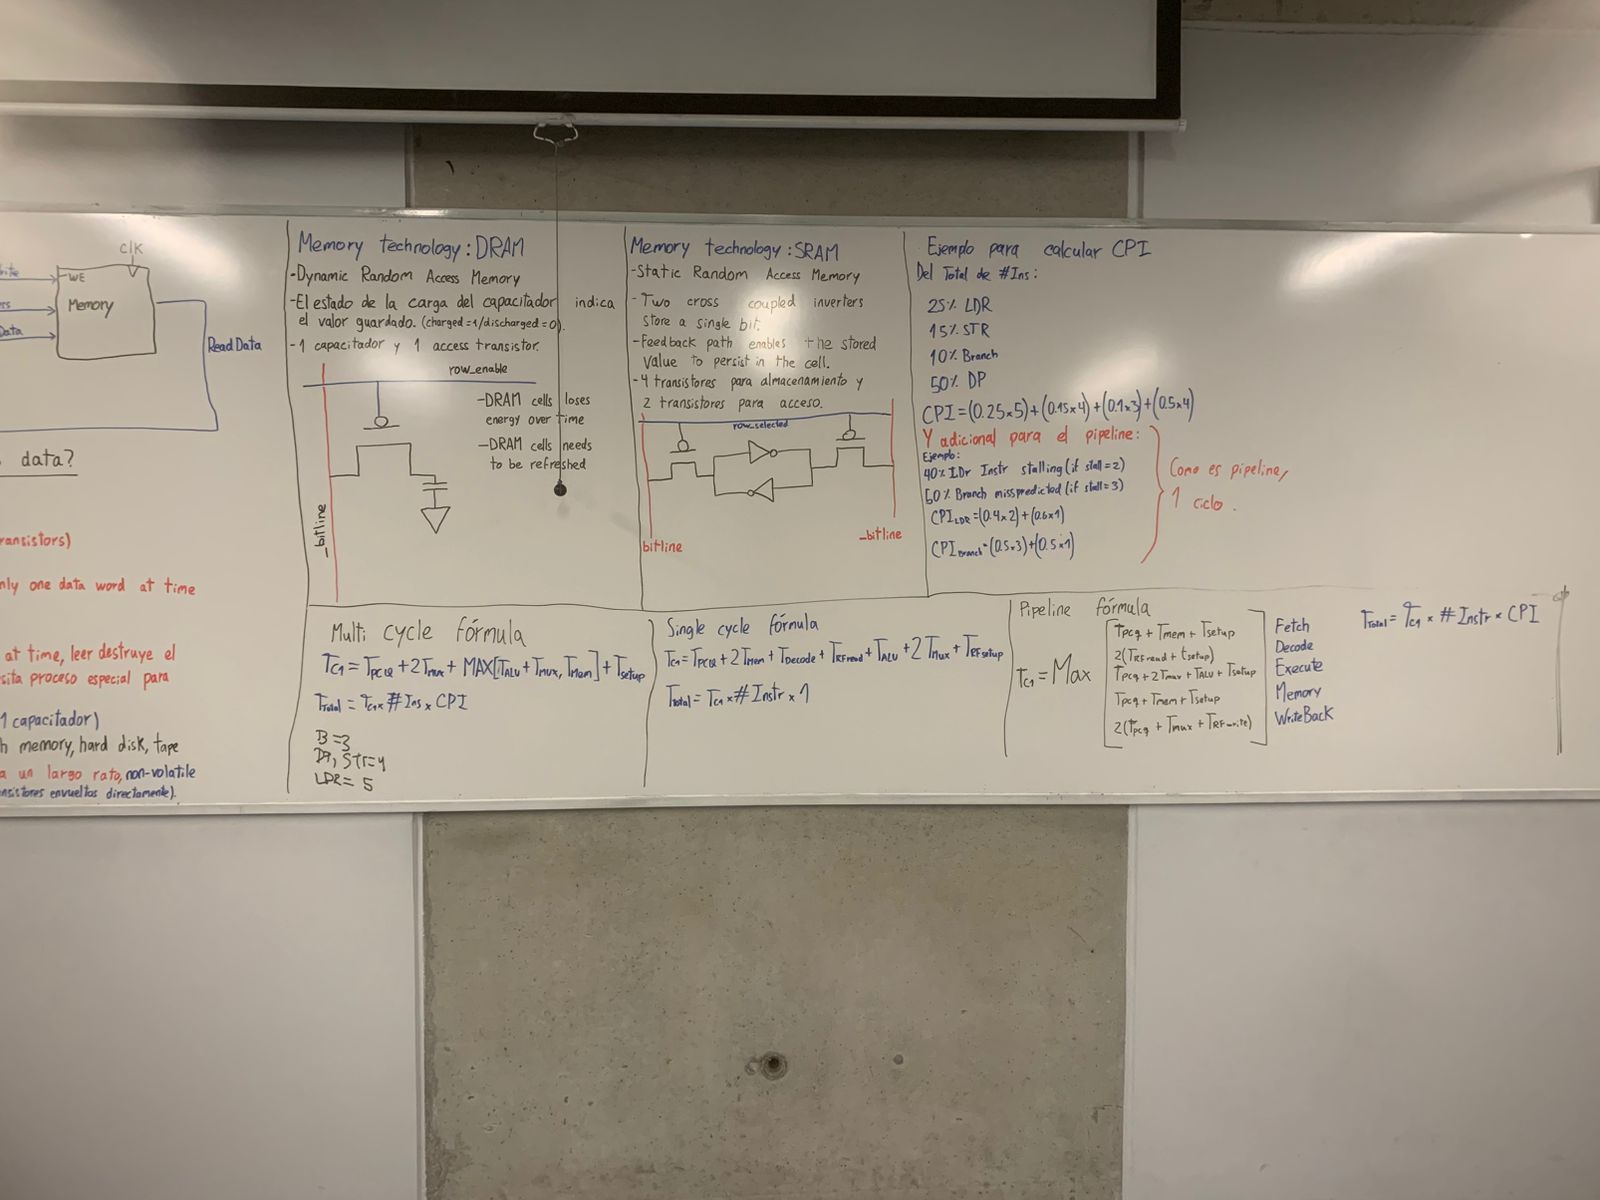 clk
WE
Memory
Data
Read Data
data?
ransistors)
nly one data word at time
at time, leer destruye el
sita proceso especial para
1 capacitador)
h memory, hard disk, tape
a un largo rato, non-volatile
nsistores envueltos directamente).
Memory technology: DRAM
-Dynamic Random Access Memory
-El estado de la carga del capacitador indica
el valor guardado. (charged=1/discharged=0).
-1 capacitador y 1 access transistor.
row_enable
-DRAM cells loses
energy over time
-DRAM cells needs
to be refreshed
_bitline
Memory technology: SRAM
-Static Random Access Memory
-Two cross coupled inverters
store a single bit.
-Feedback path enables the stored
value to persist in the cell.
-4 transistores para almacenamiento y
2 transistores para acceso.
row_selected
bitline
_bitline
Ejemplo para calcular CPI
Del Total de #Ins:
25% LDR
15% STR
10% Branch
50% DP
CPI=(0.25x5)+(0.15x4)+(0.1x3)+(0.5x4)
Y adicional para el pipeline:
Ejemplo:
40% LDr Instr stalling (if stall=2)
50% Branch misspredicted (if stall=3)
CPI LDR=(0.4x2)+(0.6x1)
CPI Branch=(0.5x3)+(0.5x1)
Como es pipeline,
1 ciclo.
Multi cycle fórmula
Tc1=TPCQ+2Tmux+MAX[TALU+Tmux,Tmem]+Tsetup
TTotal=Tc1x#InsxCPI
B=3
DP, Str=4
LDR=5
Single cycle fórmula
Tc1=TPCQ+2TMem+TDecode+TRFread+TALU+2TMux+TRFsetup
Ttotal=Tc1x#Instrx1
Pipeline fórmula
Tc1=Max
Tpcq+Tmem+Tsetup
2(TRFread+tsetup)
Tpcq+2Tmux+TALU+Tsetup
Tpcq+Tmem+Tsetup
2(Tpcq+Tmux+TRFwrite)
Fetch
Decode
Execute
Memory
WriteBack
TTotal=Tc1x#InstrxCPI